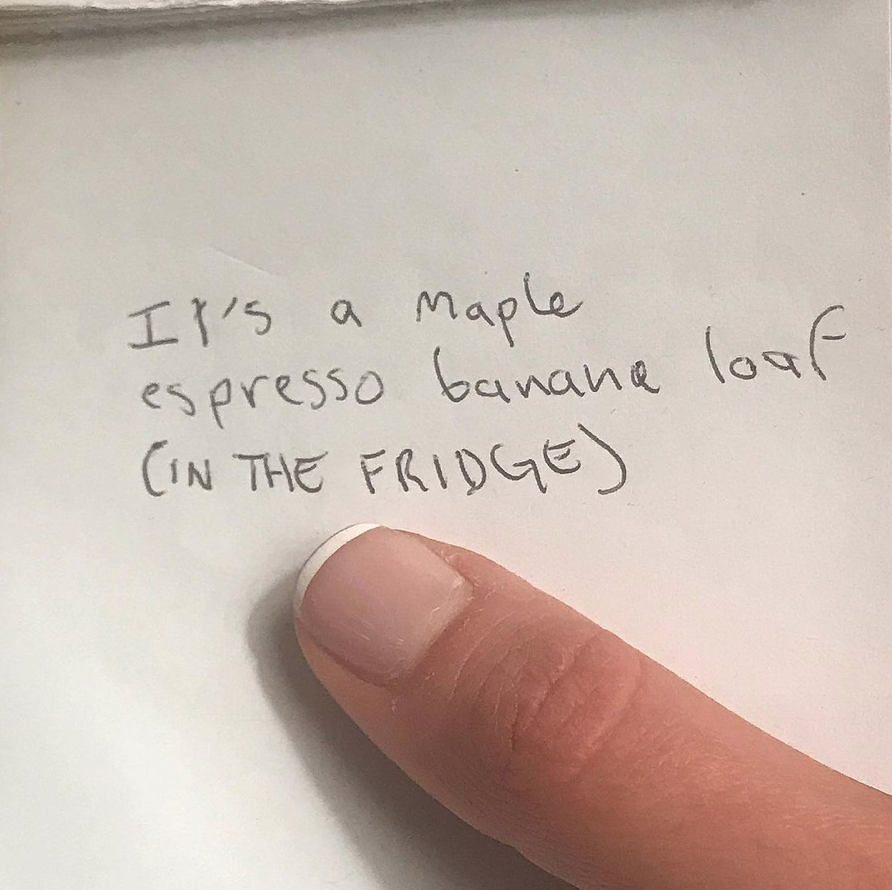 It's a Maple
espresso banana loaf
(IN THE FRIDGE)